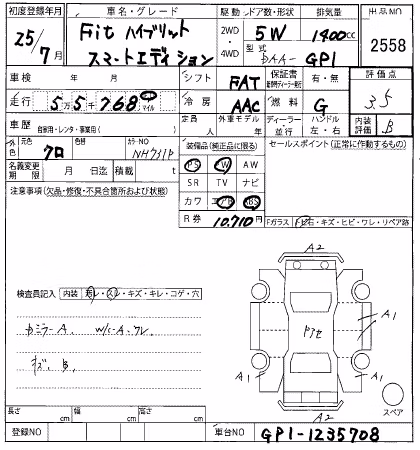 初度登録年月
車名・グレード
駆動
ドア数・形状
排気量
出品NO
25/7月
Fit ハイブリット
スマートエディション
2WD
4WD
5W
1400cc
型式
DAA-GP1
2558
車検 年 月
シフト
FAT
保証書
有・無
評価点
走行
5万5千768
マイル
冷房
AAC
燃料
G
3.5
車歴
自家用・レンタ・事業用( )
定員 人
乗車 人
外車モデル 年
ディーラー
並行
ハンドル
左・右
内装評価
B
外色
元色
クロ
カラーNO
NH731P
装備品(純正品に限る)
セールスポイント(正常に作動するもの)
名義変更期限 月 日迄
積載 t
PS PW AW
SR TV ナビ
カワ エアB ABS
注意事項(欠品・修復・不具合箇所および状態)
R券
10,710円
Fガラス
トビ石・キズ・ヒビ・ワレ・リペア跡
検査員記入
内装
ヨレ・スレ・キズ・キレ・コゲ・穴
A2
A1
A1
A1
A2
スペア
長さ cm
幅 cm
高さ cm
登録NO
車台NO
GP1-1235708